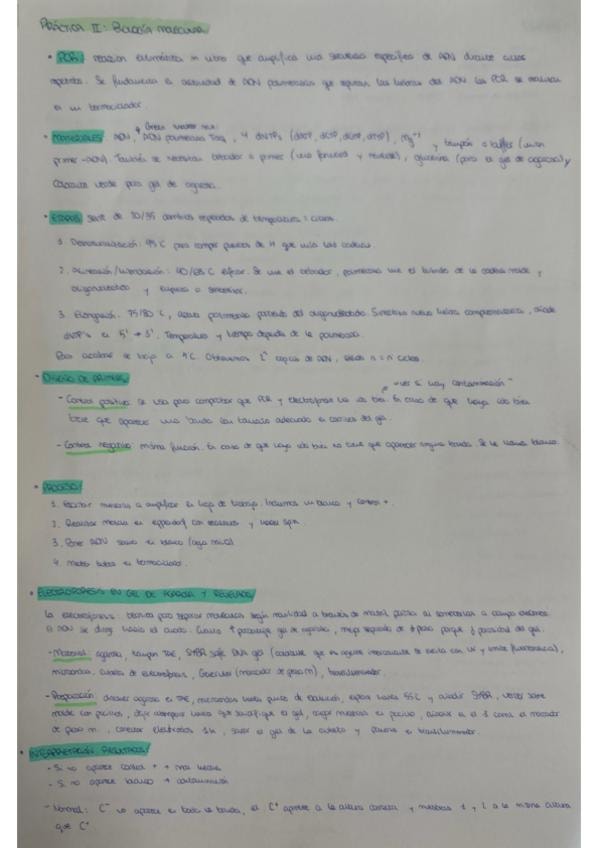 PRÁCTICA II: Biología molecular
• PCR: reacción enzimática in vitro que amplifica una secuencia específica de ADN durante ciclos
repetidos. Se fundamenta en actividad de ADN polimerasas que copian las hebras del ADN. Las PCR se realizan
en un termociclador.
Green master mix
• MATERIALES: ADN, ADN polimerasa Taq, 4 dNTPs (dATP, dCTP, dGTP, dTTP), Mg y tampón o buffer (unión
primer-ADN). También se necesitan cebador o primer (uno forward y reverse), glicerina (para el gel de agarosa) y
colorante verde para gel de agarosa.
• ETAPAS: serie de 30/35 cambios repetidos de temperatura = ciclos.
1. Desnaturalización: 95°C para romper puentes de H que unía las cadenas.
2. Alineación/hibridación: 40/68°C Se une el cebador, polimerasa une el híbrido de la cadena molde y
oligonucleótido y empieza a sintetizar.
3. Elongación: 75/80°C, actúa polimerasa partiendo del oligonucleótido. Sintetiza nueva hebra complementaria, añade
dNTP's en 5' → 3'. Temperatura y tiempo depende de la polimerasa.
Para acabar se baja a 4°C. Obtenemos 2ⁿ copias de ADN, siendo n = nº ciclos.
• DISEÑO DE PRIMERS
"ver si hay contaminación"
- Control positivo: se usa para comprobar que PCR y electroforesis ha ido bien. En caso de que haya ido bien
tiene que aparecer una banda con tamaño adecuado en carriles del gel.
- Control negativo: misma función. En caso de que vaya todo bien no tiene que aparecer ninguna banda. Se le llama blanco.
• PROCESO
1. Escribir muestras a amplificar en hoja de trabajo. Incluimos un blanco y control +.
2. Realizar mezcla en eppendorf con reactivos y hacer spin.
3. Poner ADN salvo en blanco (agua miliQ)
4. Meter tubos en termociclador.
• ELECTROFORESIS EN GEL DE AGAROSA Y REVELADO
La electroforesis: técnica para separar moléculas según movilidad a través de matriz porosa al someterlas a campo eléctrico.
El ADN se dirige hacia el ánodo. Cuanto ↑ porcentaje gel de agarosa, mejor separado de ↓ peso porque ↓ porosidad del gel.
- Material: agarosa, tampón TAE, SYBR safe DNA gel (colorante que es agente intercalante se excita con UV y emite fluorescencia),
microondas, cubeta de electroforesis, (marcador de peso m), transiluminador.
- Preparación: disolver agarosa en TAE, microondas hasta punto de ebullición, esperar hasta 55°C y añadir SYBR, verter sobre
molde con pocillos, dejar enfriar hasta que solidifique el gel, cargar muestras en pocillo, en el 1 como el marcador
de peso m., conectar electrodos 1h, sacar el gel de la cubeta y ponerlo en transiluminador.
• INTERPRETACIÓN RESULTADOS
- Si no aparece control + → mal hecha
- Si no aparece blanco → contaminación
- Normal: C⁻ no aparece en todo la banda, el C⁺ aparece a la altura correcta y muestras 1 y 2 a la misma altura
que C⁺